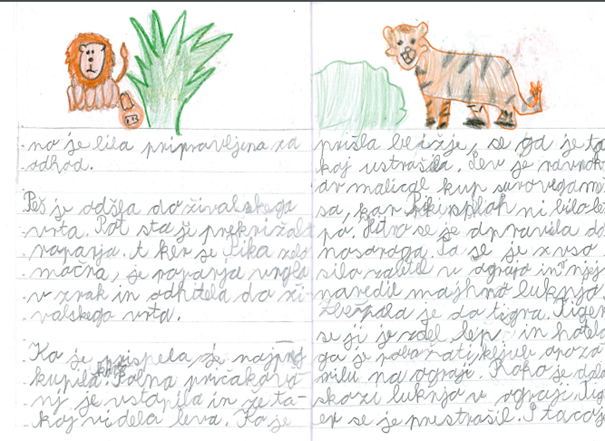 no je bila pripravljena za
odhod.
Peš je odšla do živalskega
vrta. Pot sta ji prekrižala
roparja. A ker je Pika zelo
močna, je roparja vrgla
v zrak in odhitela do ži-
valskega vrta.
Ko je prispela, je najprej
kupila karto. Polna pričakova-
nj je vstopila in že ta-
koj videla leva. Ko je
prišla bližje, se ga je ta-
koj ustrašila. Lev je ravnok-
ar malical kup surovega me-
sa, kar Piki sploh ni bilo le-
po. Hitro se je odpravila do
nosoroga. Ta se je z vso
silo zaletel v ograjo in v njej
naredil majhno luknjo.
Zbežala je do tigra. Tiger
se ji je zdel lep in hotela
ga je pobožati kljub opozo-
rilu na ograji. Roko je dala
skozi luknjo v ograji. Tig-
er se je prestrašil. I takoj